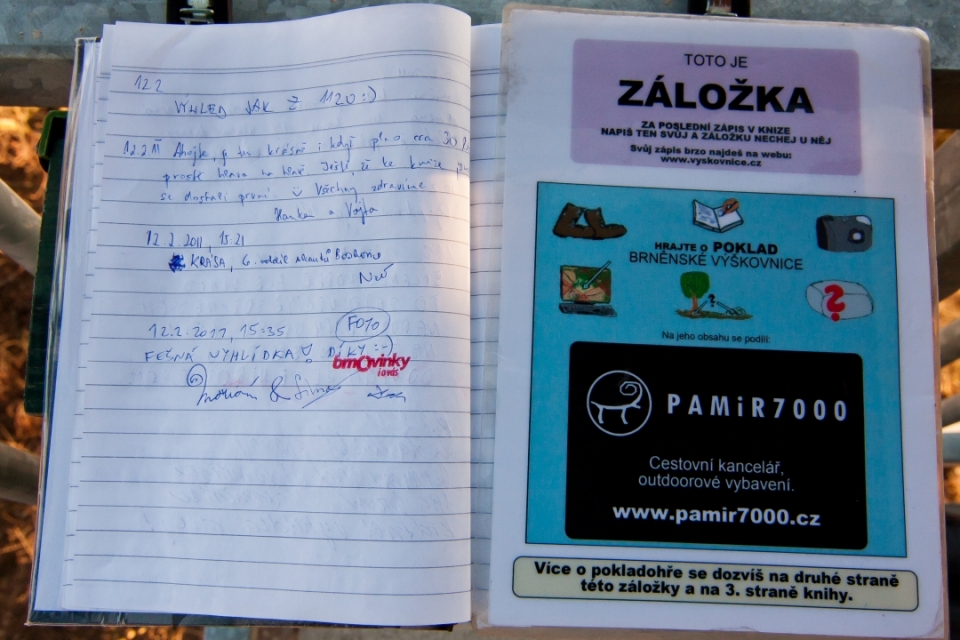 12.2
VÝHLED JAK Z 1120 :)
12.2.11 Ahojte, je tu krásně i když
prostě hlava na hlavě ještě, že ke knize
se dostali první Všechny zdravíme
Hanka a Vojta
12.2.2011, 15:21
KRÁSA, 6. oddíl skautů
12.2.2011, 15:35 FOTO
FEŠNÁ VYHLÍDKA! DÍKY :-)
brnovinky
i o vás
& 
TOTO JE
ZÁLOŽKA
ZA POSLEDNÍ ZÁPIS V KNIZE
NAPIŠ TEN SVŮJ A ZÁLOŽKU NECHEJ U NĚJ
Svůj zápis brzo najdeš na webu:
www.vyskovnice.cz
HRAJTE O POKLAD
BRNĚNSKÉ VÝŠKOVNICE
?
Na jeho obsahu se podílí:
PAMiR7000
Cestovní kancelář,
outdoorové vybavení.
www.pamir7000.cz
Více o pokladohře se dozvíš na druhé straně
této záložky a na 3. straně knihy.